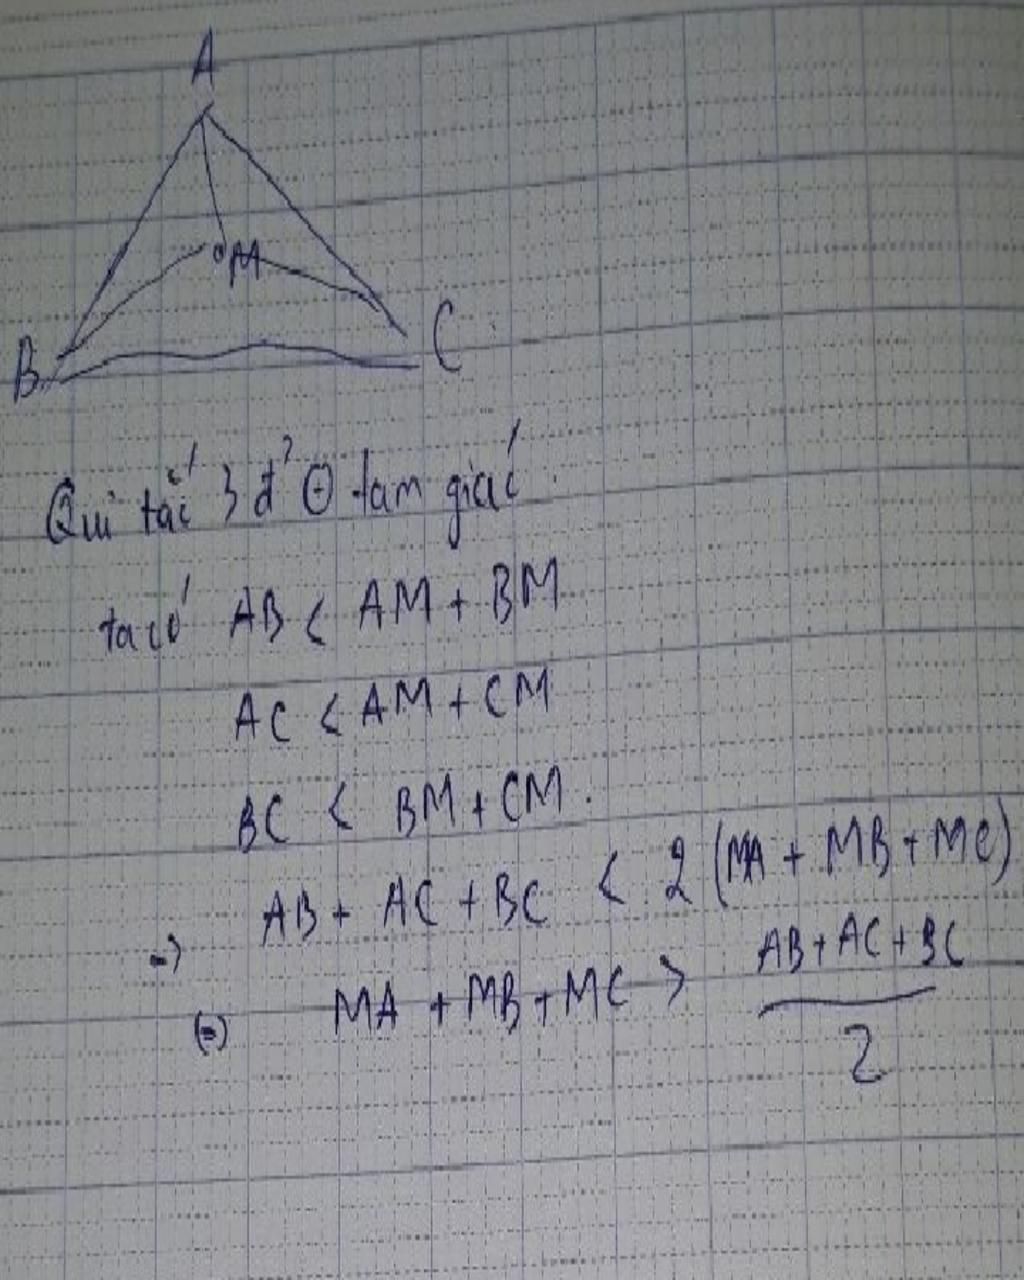 A
M
B
C
Qui tắc 3 đ' Θ tam giác
ta có AB < AM + BM
AC < AM + CM
BC < BM + CM.
=> AB + AC + BC < 2 (MA + MB + MC)
(=) MA + MB + MC > AB + AC + BC
2